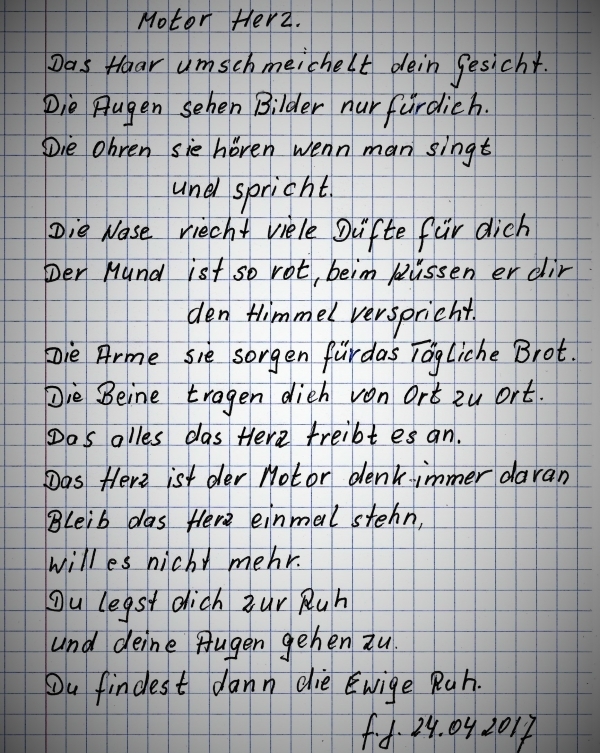 Motor Herz.
Das Haar umschmeichelt dein Gesicht.
Die Augen sehen Bilder nur fürdich.
Die Ohren sie hören wenn man singt
und spricht.
Die Nase riecht viele Düfte für dich
Der Mund ist so rot, beim küssen er dir
den Himmel verspricht.
Die Arme sie sorgen fürdas Tägliche Brot.
Die Beine tragen dich von Ort zu Ort.
Das alles das Herz treibt es an.
Das Herz ist der Motor denk immer daran
Bleib das Herz einmal stehn,
will es nicht mehr.
Du legst dich zur Ruh
und deine Augen gehen zu.
Du findest dann die Ewige Ruh.
f.j. 24.04.2017